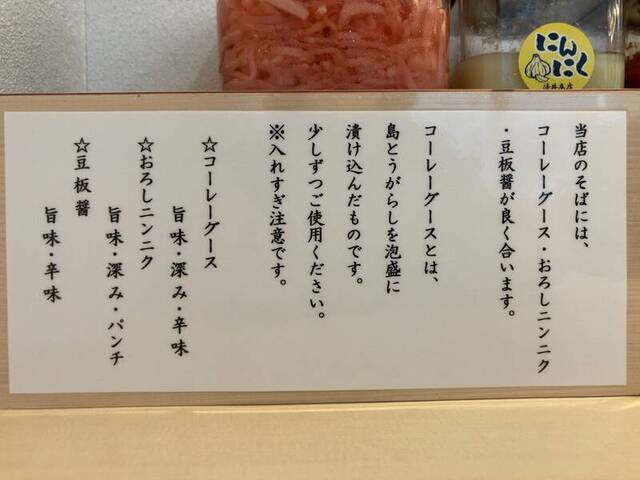 にんにく
当店のそばには、
コーレーグース・おろしニンニク
・豆板醤が良く合います。
コーレーグースとは、
島とうがらしを泡盛に
漬け込んだものです。
少しずつご使用ください。
※入れすぎ注意です。
☆コーレーグース
旨味・深み・辛味
☆おろしニンニク
旨味・深み・パンチ
☆豆板醤
旨味・辛味